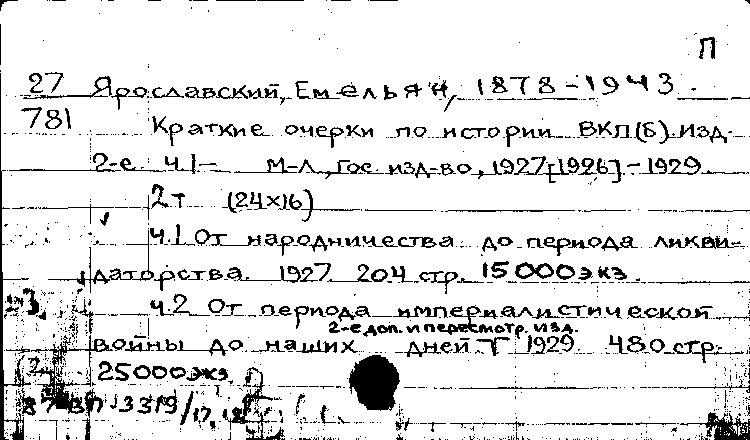 П
27 Ярославский, Емельян, 1878-1943.
781 Краткие очерки по истории ВКП(б). Изд.
2-е ч.1- М-Л., Гос. изд-во, 1927[1926]-1929.
2т (24×16)
ч.1 От народничества до периода ликви-
даторства. 1927. 204 стр. 15000 экз.
ч.2 От периода империалистической
2-е доп. и пересмотр. изд.
войны до наших дней. 1929 480 стр.
25000 экз.